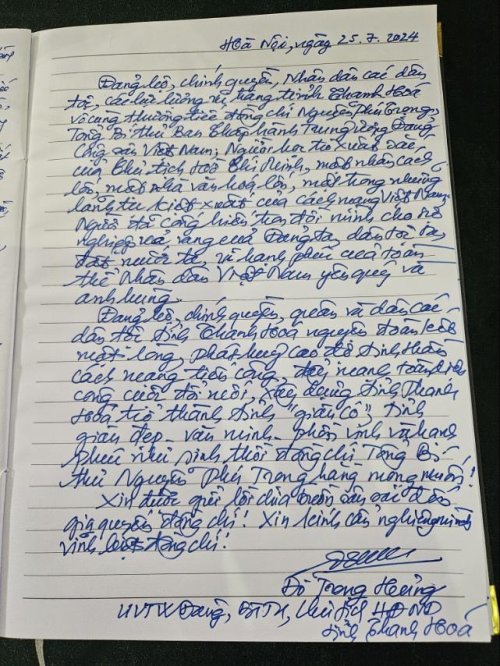 Hoà Nội, ngày 25.7.2024
Đảng bộ, chính quyền, Nhân dân các dân
tộc, các lực lượng vũ trang tỉnh Thanh Hoá
vô cùng thương tiếc đồng chí Nguyễn Phú Trọng,
Tổng Bí thư Ban Chấp hành Trung ương Đảng
Cộng sản Việt Nam; Người học trò xuất sắc
của Chủ tịch Hồ Chí Minh, một nhân cách
lớn, một nhà văn hoá lớn, một trong những
lãnh tụ kiệt xuất của cách mạng Việt Nam.
Người đã cống hiến trọn đời mình cho sự
nghiệp vẻ vang của Đảng ta, dân tộc ta,
đất nước ta, vì hạnh phúc của toàn
thể Nhân dân Việt Nam yêu quý và
anh hùng.
Đảng bộ, chính quyền, quân và dân các
dân tộc tỉnh Thanh Hoá nguyện đoàn kết
một lòng, phát huy cao độ tinh thần
cách mạng tiến công, đẩy mạnh toàn diện
công cuộc đổi mới, xây dựng tỉnh Thanh
Hoá trở thành tỉnh "giàu có" tỉnh
giàu đẹp - văn minh - phồn vinh và hạnh
phúc như sinh thời đồng chí Tổng Bí
thư Nguyễn Phú Trọng hằng mong muốn!
Xin được gửi lời chia buồn sâu sắc đến
gia quyến đồng chí! Xin kính cẩn nghiêng mình
vĩnh biệt đồng chí!
Đỗ Trọng Hưng
UVTW Đảng, BTTU, Chủ tịch HĐND
tỉnh Thanh Hoá